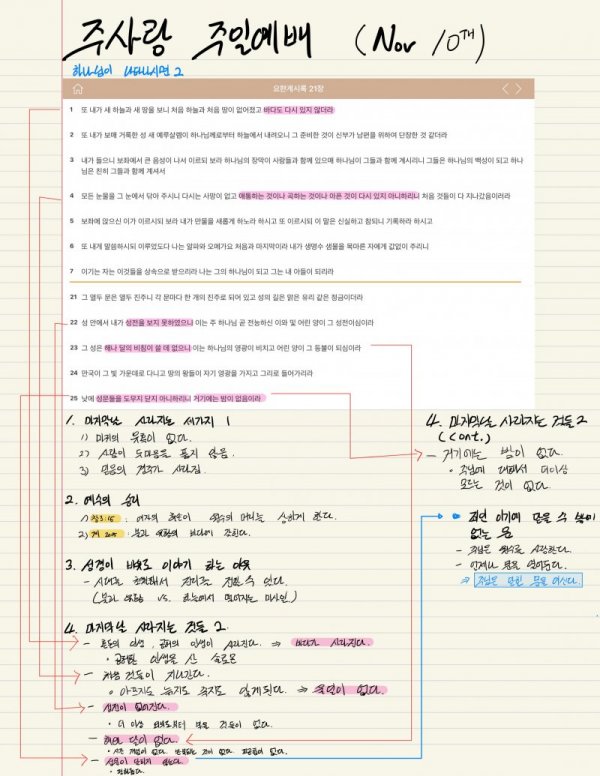 주사랑 주일예배 (Nov
하나님이 나타나시면 2
요한계시록 21장
1 또 내가 새 하늘과 새 땅을 보니 처음 하늘과 처음 땅이 없어졌고 바다도 다시 있지 않더라
2 또 내가 보매 거룩한 성 새 예루살렘이 하나님께로부터 하늘에서 내려오니 그 준비한 것이 신부가 남편을 위하여 단장한 것 같더라
3 내가 들으니 보좌에서 큰 음성이 나서 이르되 보라 하나님의 장막이 사람들과 함께 있으매 하나님이 그들과 함께 계시리니 그들은 하나님의 백성이 되고 하나
님은 친히 그들과 함께 계셔서
4 모든 눈물을 그 눈에서 닦아 주시니 다시는 사망이 없고 애통하는 것이나 곡하는 것이나 아픈 것이 다시 있지 아니하리니 처음 것들이 다 지나갔음이러라
5 보좌에 앉으신 이가 이르시되 보라 내가 만물을 새롭게 하노라 하시고 또 이르시되 이 말은 신실하고 참되니 기록하라 하시고
6 또 내게 말씀하시되 이루었도다 나는 알파와 오메가요 처음과 마지막이라 내가 생명수 샘물을 목마른 자에게 값없이 주리니
7 이기는 자는 이것들을 상속으로 받으리라 나는 그의 하나님이 되고 그는 내 아들이 되리라
21 그 열두 문은 열두 진주니 각 문마다 한 개의 진주로 되어 있고 성의 길은 맑은 유리 같은 정금이더라
22 성 안에서 내가 성전을 보지 못하였으니 이는 주 하나님 곧 전능하신 이와 및 어린 양이 그 성전이심이라
23 그 성은 해나 달의 비침이 쓸 데 없으니 이는 하나님의 영광이 비치고 어린 양이 그 등불이 되심이라
24 만국이 그 빛 가운데로 다니고 땅의 왕들이 자기 영광을 가지고 그리로 들어가리라
25 낮에 성문들을 도무지 닫지 아니하리니 거기에는 밤이 없음이라
1. 마지막날 사라지는 세가지 1
1) 마귀의 유혹이 없다.
2) 사람이 도마음을 품지 않음.
3) 믿음의 경주가 사라짐.
2. 예수의 승리
1) 창 3:15 : 여자의 후손이 뱀의 머리를 상하게 한다.
2) 계 : 불과 유황의 바다에 갇힌다.
3. 성경이 비유로 이야기 하는 이유
- 시대를 초월해서 진리를 전할 수 있다.
(불과 유황 vs. 하늘에서 떨어지는 미사일.)
4. 마지막날 사라지는 것들 2
- 인생, 인생이 사라진다. ⇒ 바다가 사라진다.
• 인생을 산 솔로몬
- 처음 것들이 지나간다.
• 아프지도 늙지도 죽지도 않게된다. ⇒ 죽음이 없다.
- 성전이 없어진다.
• 더 이상 것들이 없다.
- 해와 달이 없다.
• 없다.
- 성문이 닫히지 않는다.
4. 마지막날 사라지는 것들 2
(Cont.)
- 거기에는 밤이 없다.
• 주님에 대해서 더이상
모르는 것이 없다.
없는 문
- 주님은 생각한다.
- 언제나 문을 열어둔다.
⇒ 주님은 닫힌 문을 여신다.